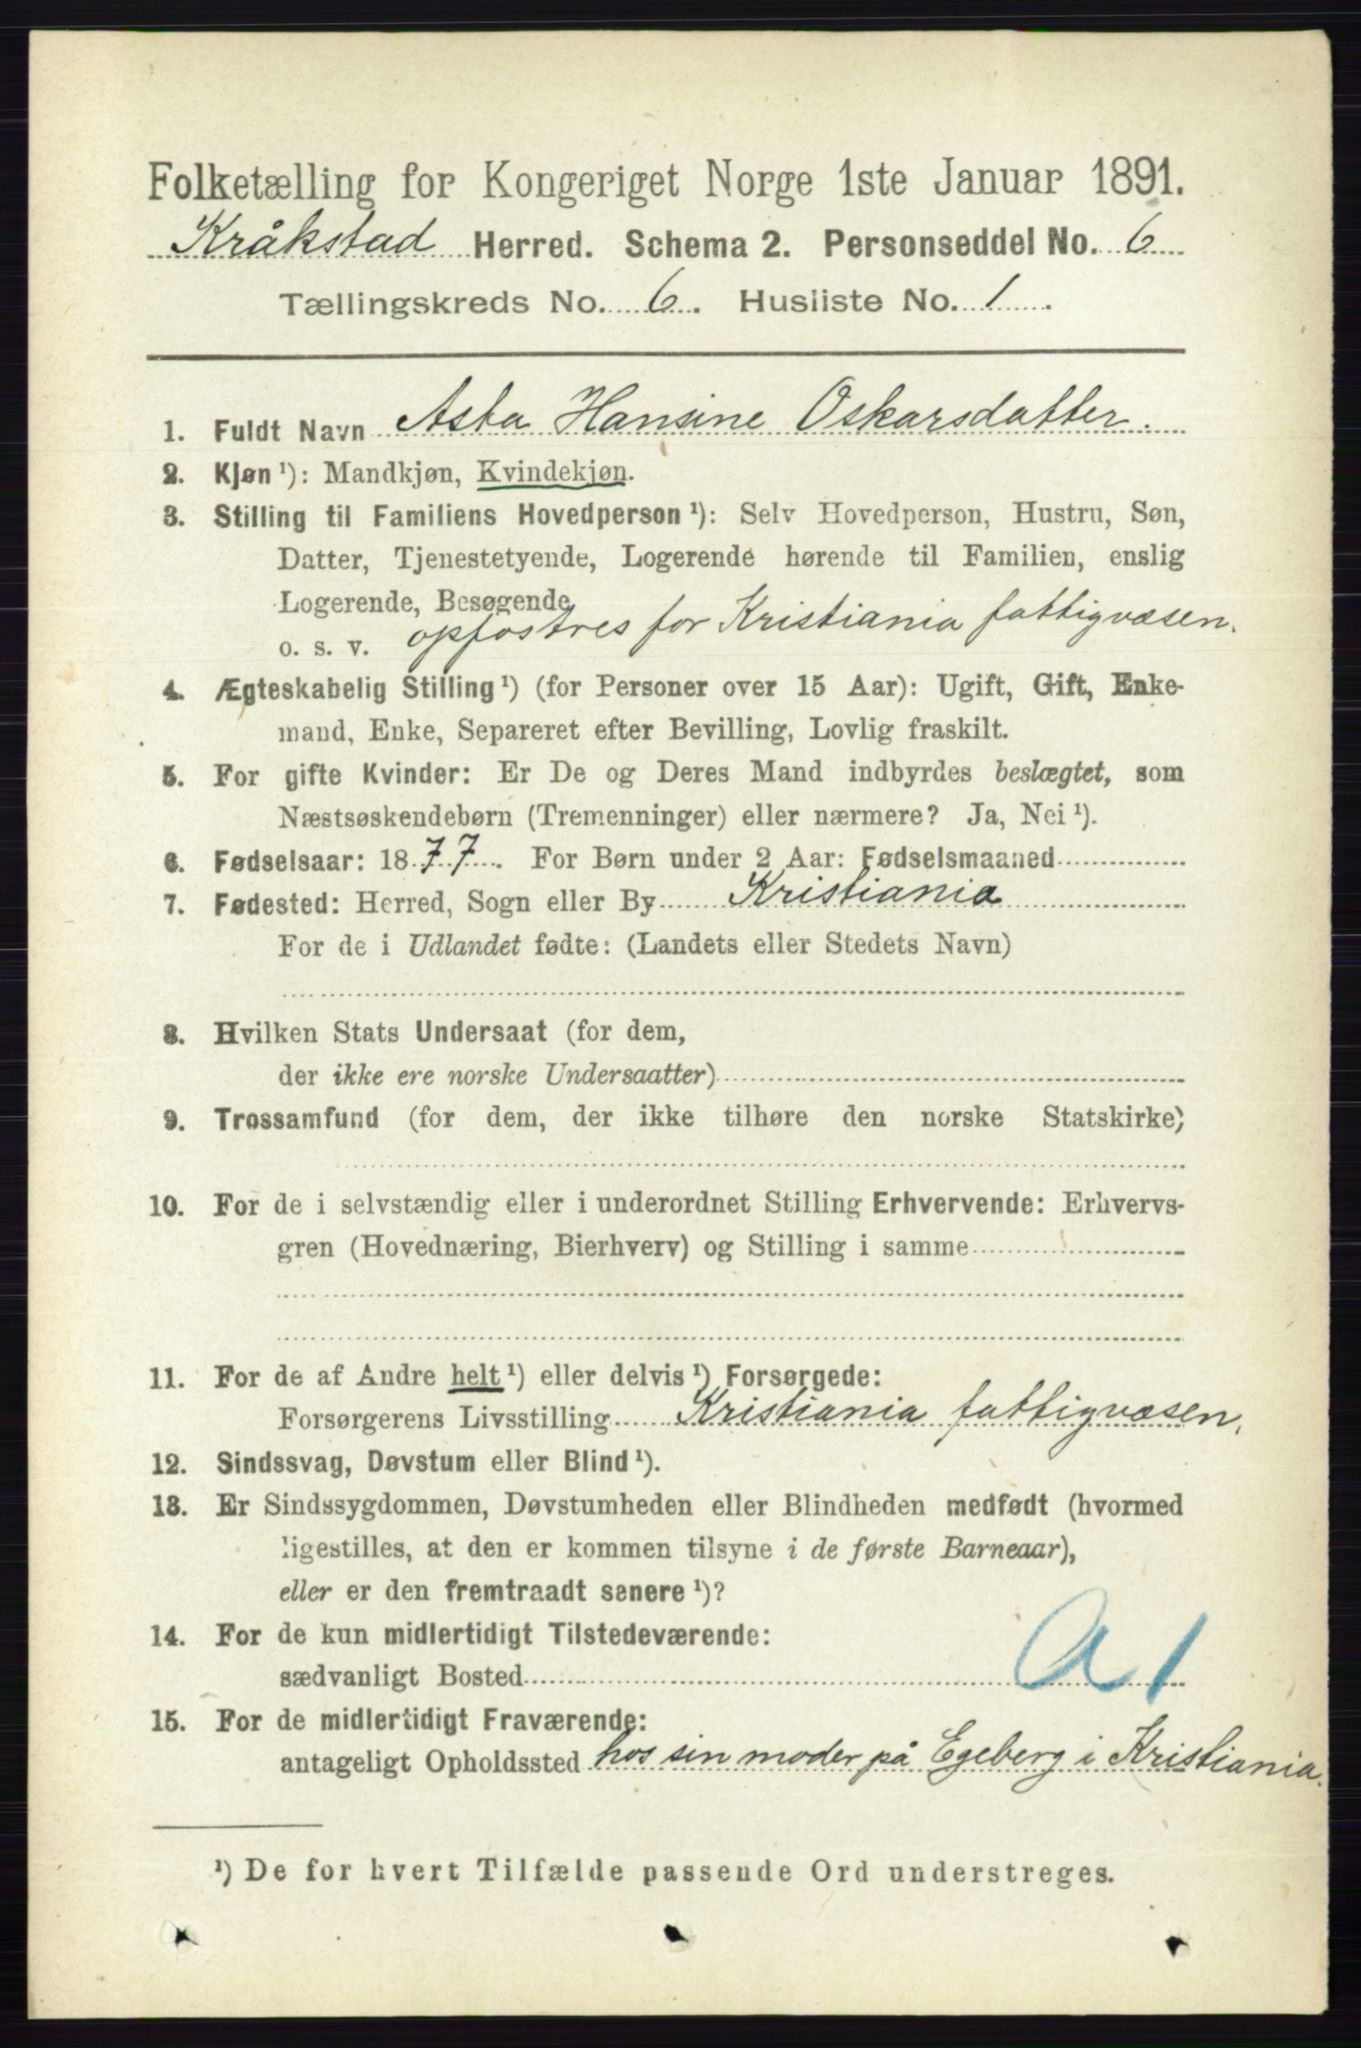 Folketælling for Kongeriget Norge 1ste Januar 1891.
Kråkstad Herred. Schema 2. Personseddel No. 6
Tællingskreds No. 6. Husliste No. 1.
1. Fuldt Navn Asta Hansine Oskarsdatter.
2. Kjøn¹): Mandkjøn, Kvindekjøn.
3. Stilling til Familiens Hovedperson¹): Selv Hovedperson, Hustru, Søn,
Datter, Tjenestetyende, Logerende hørende til Familien, enslig
Logerende, Besøgende
o. s. v. opfostres for Kristiania fattigvæsen.
4. Ægteskabelig Stilling¹) (for Personer over 15 Aar): Ugift, Gift, Enke-
mand, Enke, Separeret efter Bevilling, Lovlig fraskilt.
5. For gifte Kvinder: Er De og Deres Mand indbyrdes beslægtet, som
Næstsøskendebørn (Tremenninger) eller nærmere? Ja, Nei¹).
6. Fødselsaar: 1877. For Børn under 2 Aar: Fødselsmaaned
7. Fødested: Herred, Sogn eller By Kristiania
For de i Udlandet fødte: (Landets eller Stedets Navn)
8. Hvilken Stats Undersaat (for dem,
der ikke ere norske Undersaatter)
9. Trossamfund (for dem, der ikke tilhøre den norske Statskirke)
10. For de i selvstændig eller i underordnet Stilling Erhvervende: Erhvervs-
gren (Hovednæring, Bierhverv) og Stilling i samme
11. For de af Andre helt¹) eller delvis¹) Forsørgede:
Forsørgerens Livsstilling Kristiania fattigvæsen.
12. Sindssvag, Døvstum eller Blind¹).
13. Er Sindssygdommen, Døvstumheden eller Blindheden medfødt (hvormed
ligestilles, at den er kommen tilsyne i de første Barneaar),
eller er den fremtraadt senere¹)?
14. For de kun midlertidigt Tilstedeværende:
sædvanligt Bosted
a 1
15. For de midlertidigt Fraværende:
antageligt Opholdssted hos sin moder på Egeberg i Kristiania.
¹) De for hvert Tilfælde passende Ord understreges.